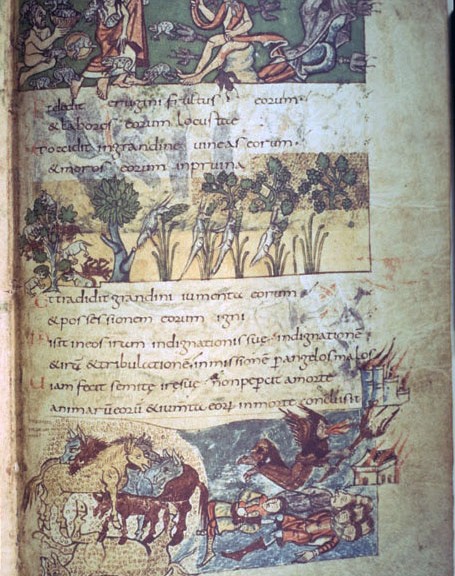 Et dedit erugini fructus eorum·
& labores eorum locustae
Et occidit in grandine vineas eorum·
& moros eorum in pruina
Et tradidit grandini iumenta eorum
& possessionem eorum igni
Misit in eos iram indignationis suae· indignationē
& irā & tribulationē inmissionē p angelos malos
Viam fecit semitę irę suę· & non pepercit a morte
animarū eorū & iumta eorꝝ in morte conclusit